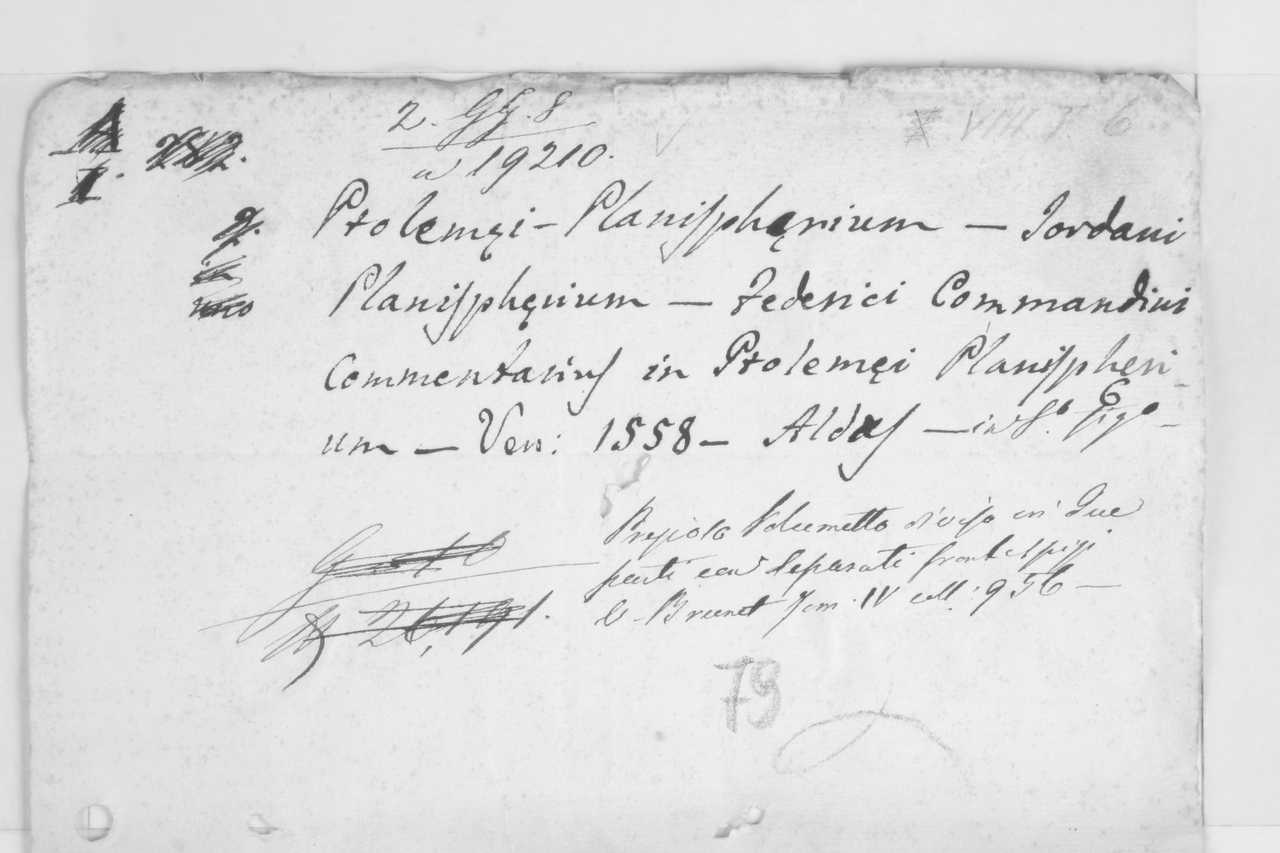 2. GG. 8
a 19210.
VIII 6
Ptolemęi - Planisphęrium — Jordani
Planisphęrium — Federici Commandini
Commentarius in Ptolemęi Planispheri-
um — Ven: 1558 — Aldus — in 8.º
Prezioso Volumetto diviso in due
parti con separati frontespizi.
V. Brunet Tom. IV coll. 956 —
79